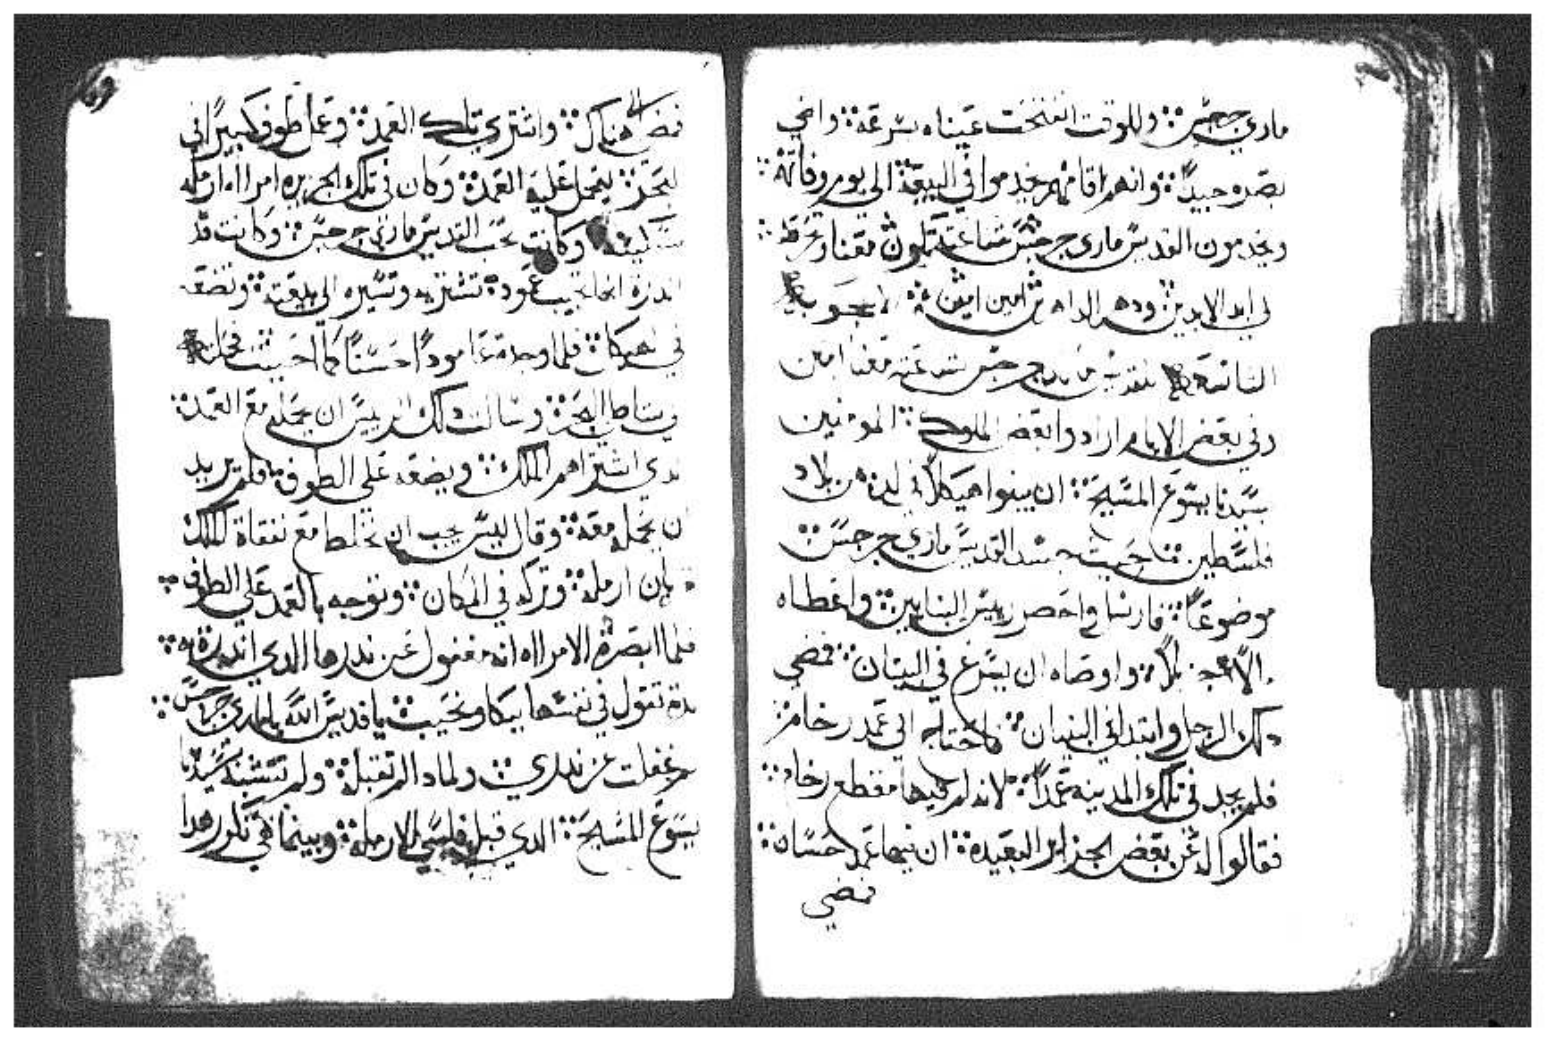 ماري جرجس وللوقت انفتحت عيناه بسرعة واضي
بصره جيداً وانهم اقامهم يخدموا في البيعة الي يوم وفاته
ويخدمون القديس ماري جرجس شفاعته تكون معنا
الي ابد الابدين ودهر الداهرين امين امين الاعجوبة
الثامنة للقديس ماري جرجس شفاعته معنا امين
وفي بعض الايام ارادوا بعض الملوك المومنين
بسيدنا يسوع المسيح ان يبنوا هيكلاً في لده من بلاد
فلسطين حيث جسد القديس ماري جرجس
موضوعاً فارسل واحضر رييس البنايين واعطاه
مالاً جزيلاً واوصاه ان يسرع في البنيان فمضي
دلك الرجل وابتدا في البنيان فاحتاج الي عمد رخام
فلم يجد في تلك المدينة عمداً لانه لم فيها مقطع رخام
فقالوا له عن بعض الجزاير البعيده ان فيها عمد حسان
فمضي
فمضي الي هناك واشتري تلك العمد وعمل طوف كبيراً في
البحر ليحمل عليه العمد وكان في تلك الجزيره امراه ارمله
وكانت تحب القديس ماري جرجس وكانت قد
اندرة انها تجيب عمود تشتريه وتسيره الي بيعته وتضعه
في هيكله فلما وجدة عاموداً حسناً كما احبت
في شاطي البحر وسالت دلك الرييس ان يحمله مع العمد
الدي اشتراهم الملك ويضعه علي الطوف فلم يريد
ان يحمله معه وقال ليس يجب ان نخلط مع نفقاة الملك
ارمله وتركه في المكان وتوجه بالعمد علي الطوف
فلما ابصرة الامراه انه مغفول عن ندرها الدي اندرة به
تقول في نفسها ببكا ونحيب يا قديس الله يا ماري جرجس
غفلت عن ندري ولمادا لم تقبله ولم تتشبه بسيدنا
يسوع المسيح الدي قبل فلسي الارمله وبينما هي تكرر هدا